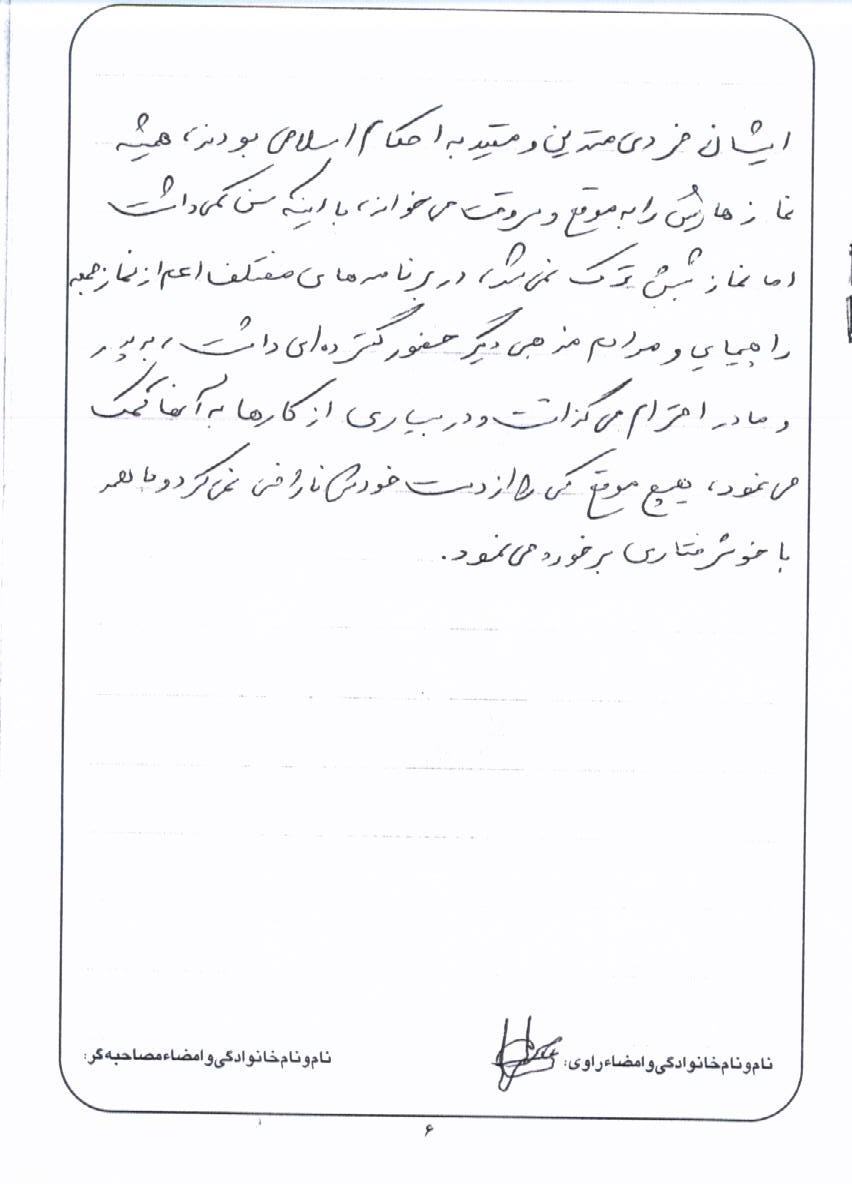 ایشان فردی متدین و مقید به احکام اسلامی بودند، همیشه
نمازهایش را به موقع و سروقت می‌خواند، با اینکه سن کمی داشت
اما نماز شبش ترک نمی‌شد، در برنامه‌های مختلف اعم از نماز جمعه
راهپیمایی و مراسم مذهبی دیگر حضور گسترده‌ای داشت، به پدر
و مادر احترام می‌گذاشت و در بسیاری از کارها به آنها کمک
می‌نمود، هیچ موقع کسی را از دست خودش ناراضی نمی‌کرد و با همه
با خوش رفتاری برخورد می‌نمود.
نام و نام خانوادگی و امضاء راوی: نام و نام خانوادگی و امضاء مصاحبه گر:
۶